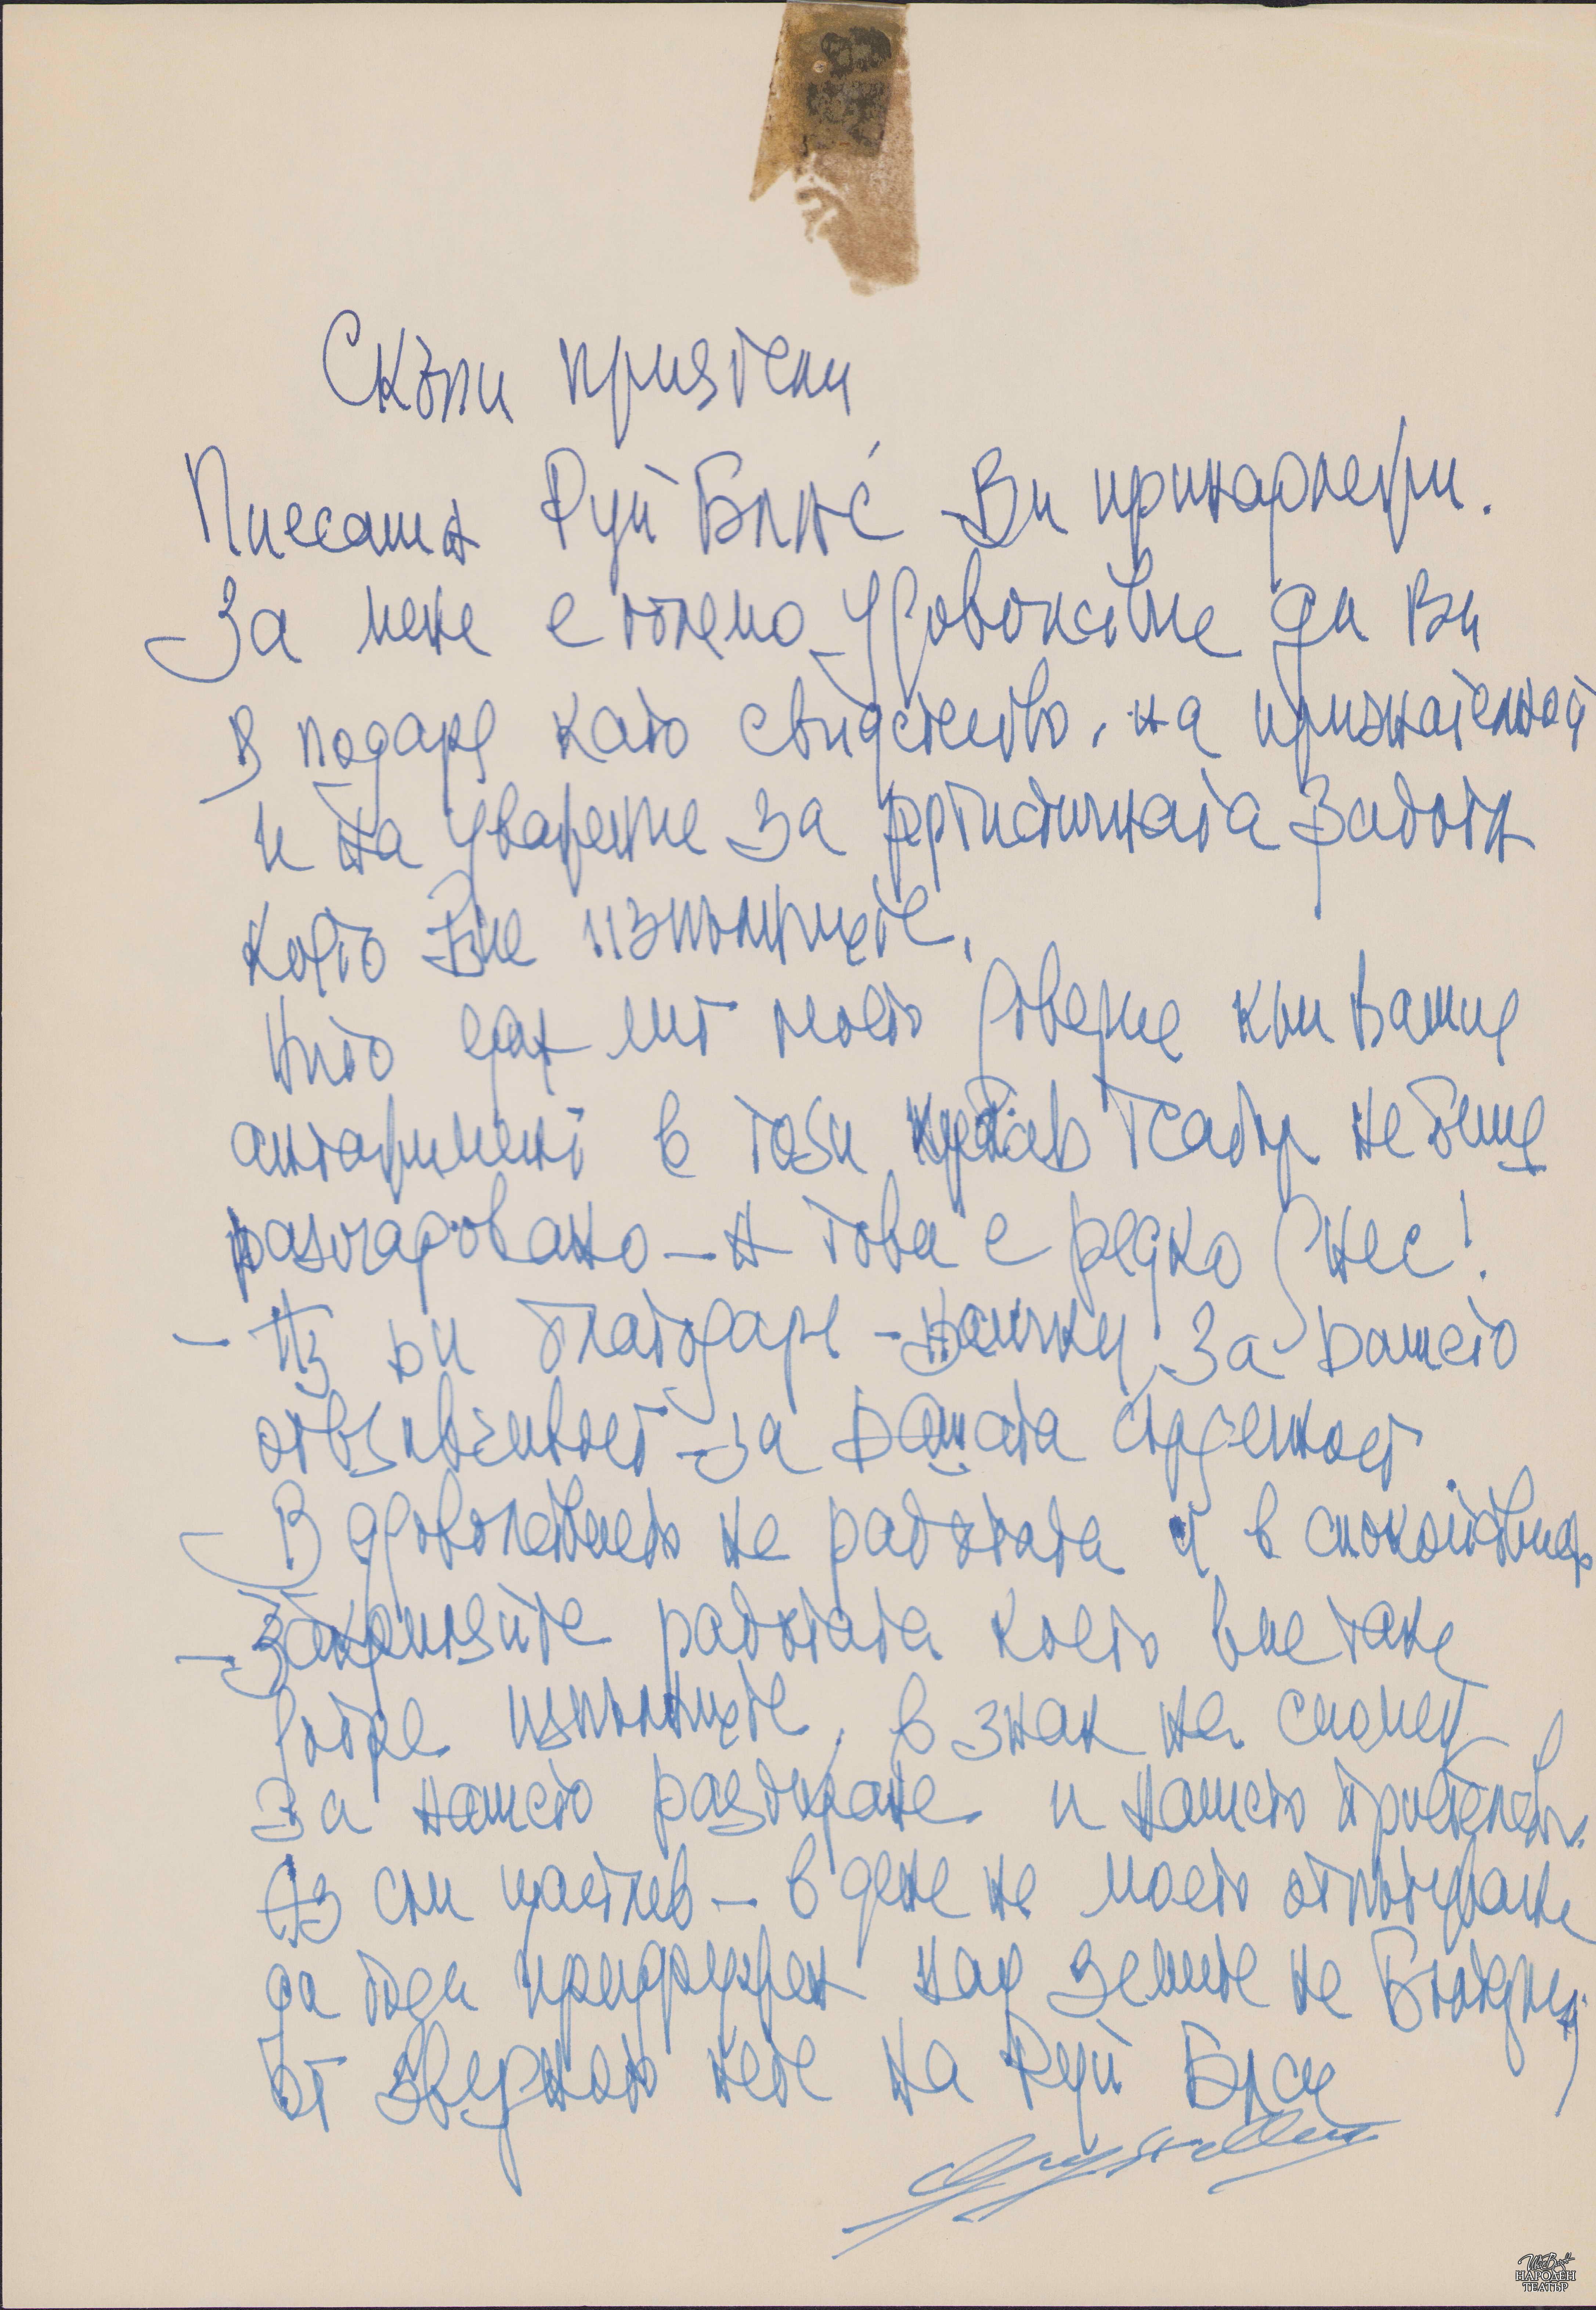 Скъпи приятели
Пиесата Руй Блас Ви принадлежи.
За мене е голямо удоволствие да Ви
я подаря като свидетелство, на признателност
и на уважение за артистичната работа
която Вие изпълнихте.
Нито един миг моето доверие към Вашия
ангажимент в този Театър не беше
разочаровано – А това е рядко днес!
– Аз ви благодаря – Всички, За Вашето
За Вашата сърдечност
– В удоволствието на работата и в спокойствие
– работата която вие така
добре изпълнихте, в знак на спомен
За нашето разбиране и нашето приятелство.
Аз съм щастлив – в деня на моето отпътуване
да бъда придружен над Земите на България,
от звездното небе на Руй Блас
НАРОДЕН
ТЕАТЪР